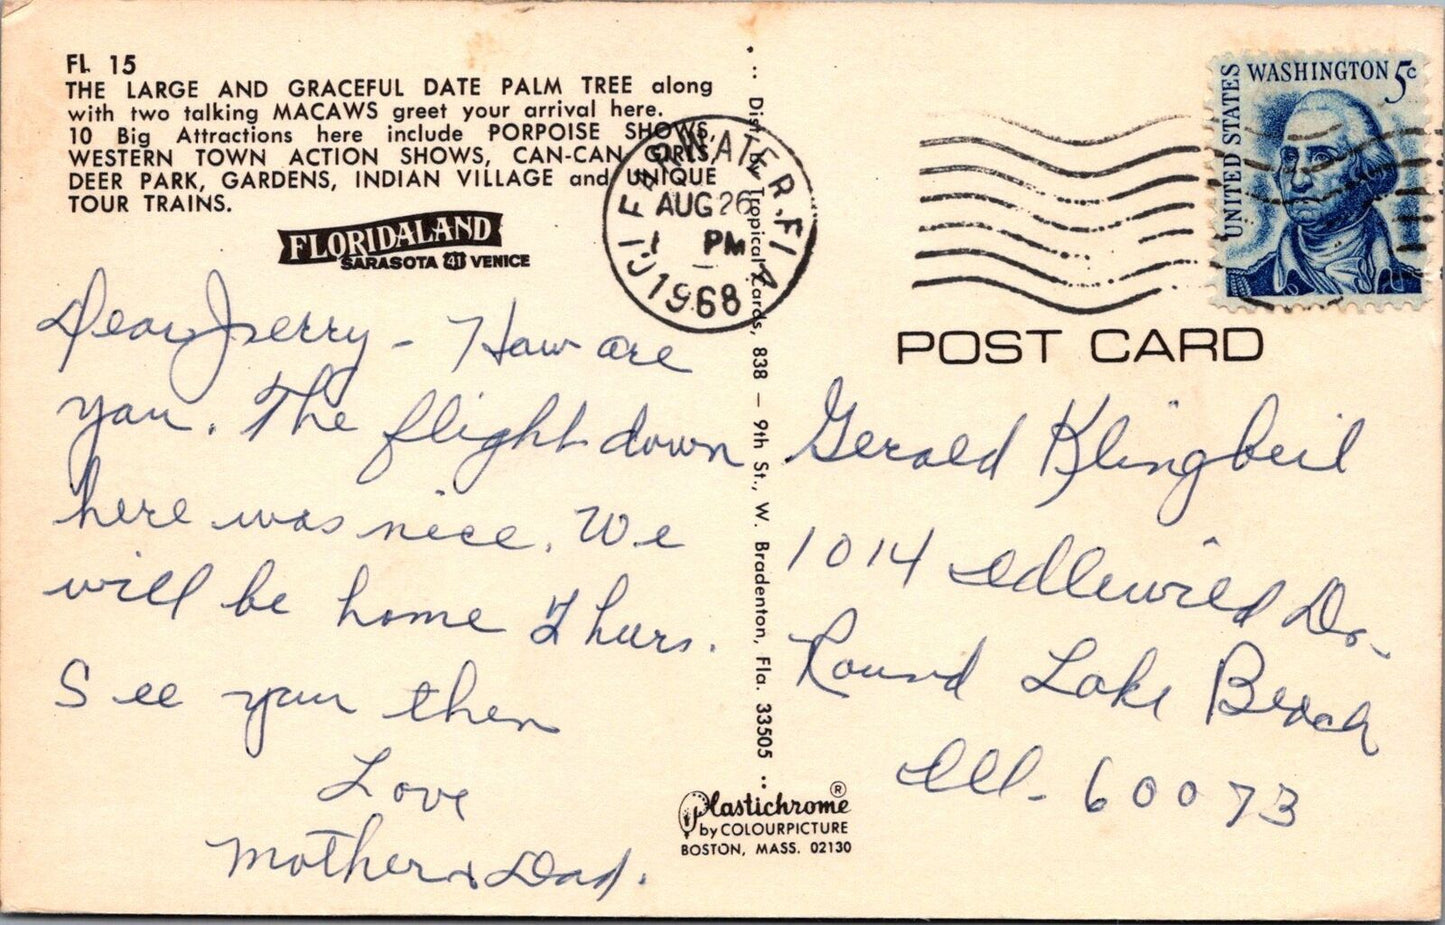 FL 15
THE LARGE AND GRACEFUL DATE PALM TREE along
with two talking MACAWS greet your arrival here.
10 Big Attractions here include PORPOISE SHOWS,
WESTERN TOWN ACTION SHOWS, CAN-CAN GIRLS,
DEER PARK, GARDENS, INDIAN VILLAGE and UNIQUE
TOUR TRAINS.
FLORIDALAND
SARASOTA 41 VENICE
Dear Jerry - How are
you. The flight down
here was nice. We
will be home Thurs.
See you then
Love
Mother & Dad.
CLEARWATER, FLA
AUG 26
PM
1968
Dist. by Tropical Cards, 838 - 9th St., W. Bradenton, Fla. 33505
Plastichrome ®
by COLOURPICTURE
BOSTON, MASS. 02130
UNITED STATES
WASHINGTON 5c
POST CARD
Gerald Klingbeil
1014 Idlewild Dr.
Round Lake Beach
Ill. 60073